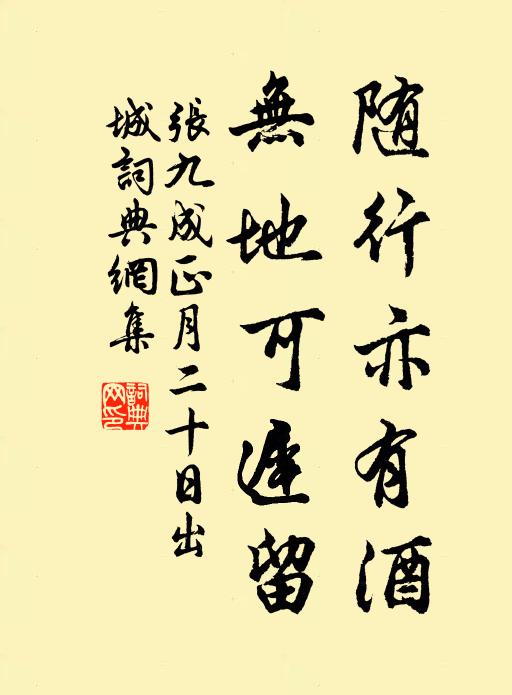 随行亦有酒
無地可遲留
張九成正月二十日出
城詞典網集
詞典
网印